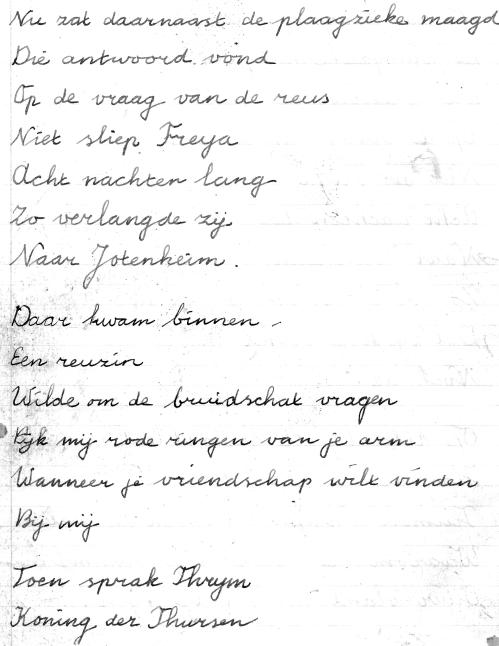 Nu zat daarnaast de plaagzieke maagd
Die antwoord vond
Op de vraag van de reus
Niet sliep Freya
Acht nachten lang
Zo verlangde zij
Naar Jotenheim.
Daar kwam binnen
Een reuzin
Wilde om de bruidschat vragen
mij rode ringen van je arm
Wanneer je vriendschap wilt vinden
Bij mij
Toen sprak Thrym
Koning der Thursen